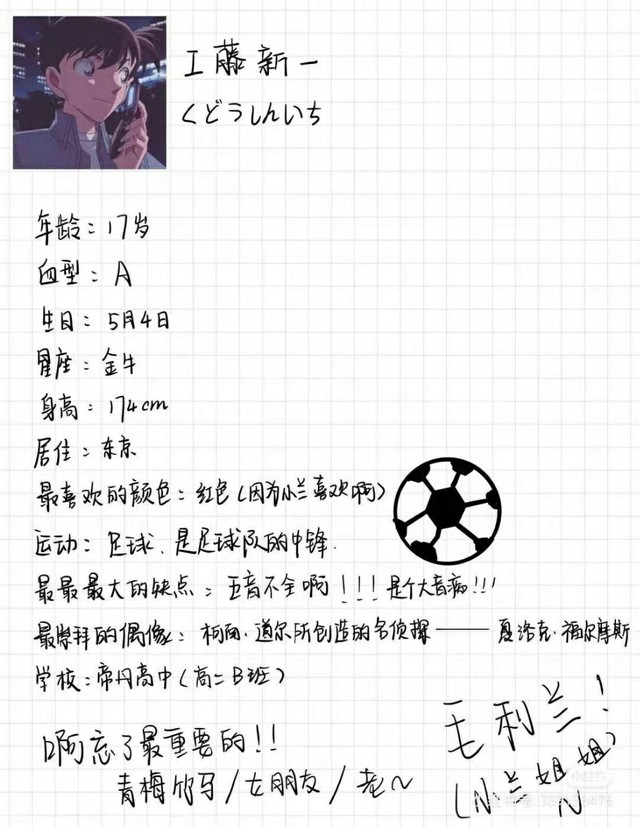 工藤新一
くどうしんいち
年龄：17岁
血型：A
生日：5月4日
星座：金牛
身高：174cm
居住：东京
最喜欢的颜色：红色(因为小兰喜欢啊)
运动：足球.是足球队的中锋.
最最最大的缺点：五音不全啊!!!是个大音痴!!!
最崇拜的偶像：柯南·道尔所创造的名侦探——夏洛克·福尔摩斯
学校：帝丹高中(高二B班)
啊忘了最重要的!!
青梅竹马/女朋友/老~
毛利兰!
(小兰姐姐)
~